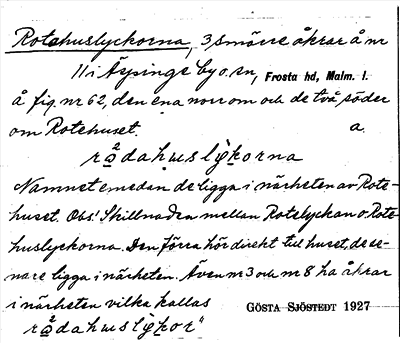 Rotahuslyckorna, 3 smärre åkrar å nr
11 i Äspinge by o. sn, Frosta hd, Malm. l.
å fig. nr 62, den ena norr om och de två söder
om Rotehuset. a.
rådahuslykorna
Namnet emedan de ligga i närheten av Rote-
huset. Obs! Skillnaden mellan Rotelyckan o. Rote-
huslyckorna. Den förra hör direkt till huset, de se-
nare ligga i närheten. Även nr 3 och nr 8 ha åkrar
i närheten vilka kallas
GÖSTA SJÖSTEDT 1927
rådahuslykor"